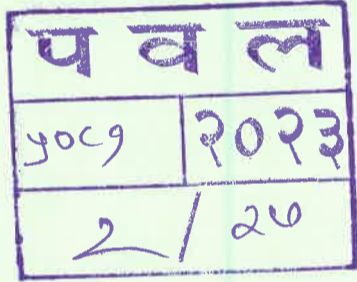 प व ल
५०८१ २०२३
२ / २७